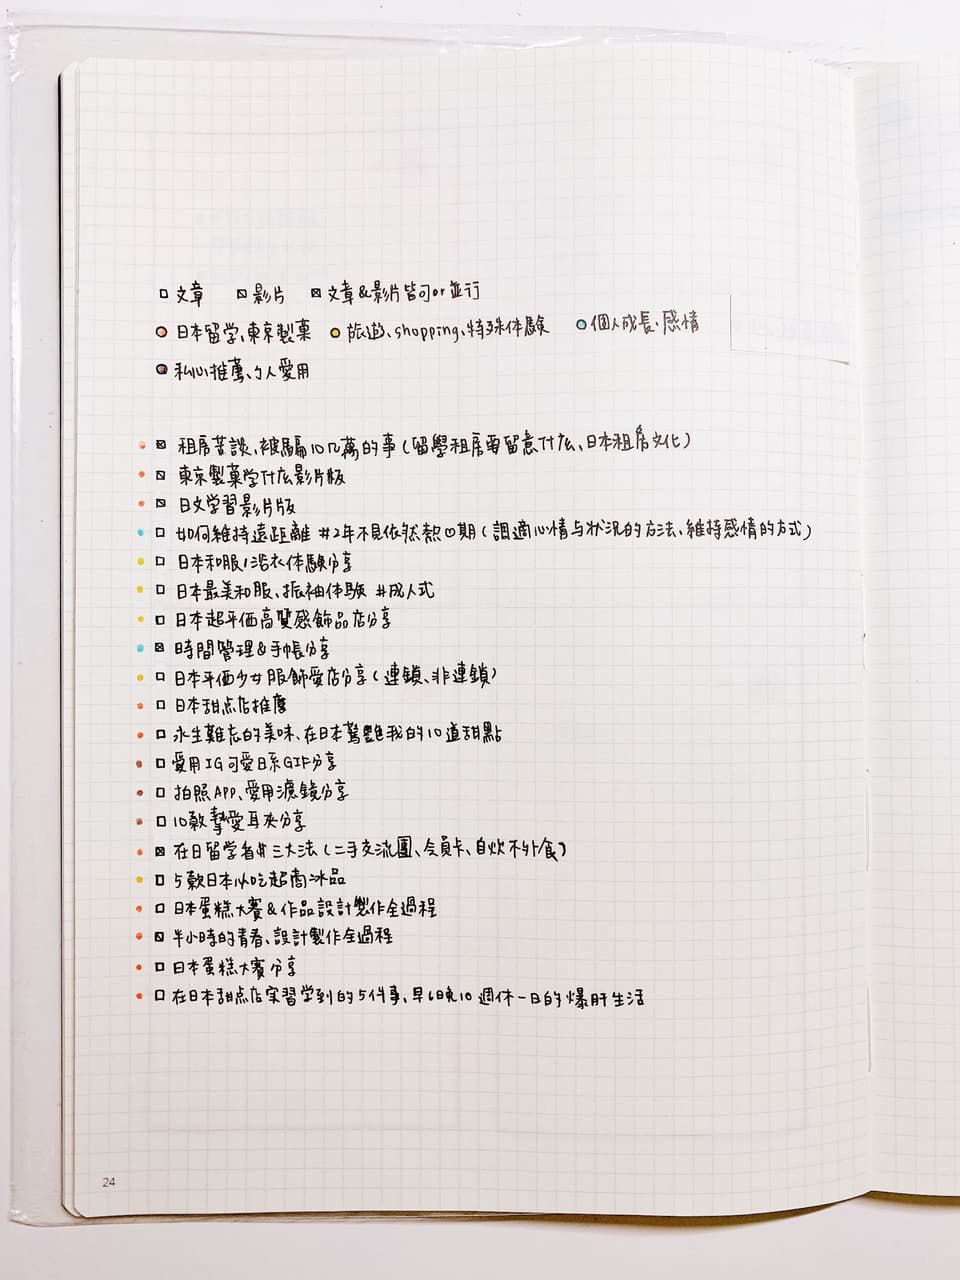 文章 影片 文章&影片皆可or並行
日本留学、東京製菓 旅遊、shopping、特殊体験 個人成長、感情
私心推薦、个人愛用
租房苦談、被騙10几萬的事(留學租房要留意什么、日本租房文化)
東京製菓学什么影片版
日文学習影片版
如何維持遠距離 #2年不見依然熱恋期(調適心情与狀況的方法、維持感情的方式)
日本和服/浴衣体験分享
日本最美和服、振袖体験 #成人式
日本超平価高質感飾品店分享
時間管理&手帳分享
日本平価少女服飾愛店分享(連鎖、非連鎖)
日本甜点店推薦
永生難忘的美味、在日本驚艷我的10道甜點
愛用IG可愛日系GIF分享
拍照APP、愛用濾鏡分享
10款摯愛耳夾分享
在日留学省#三大法(二手交流團、会員卡、自炊不外食)
5款日本必吃超商冰品
日本蛋糕大賽&作品設計製作全過程
半小時的青春、設計製作全過程
日本蛋糕大賽分享
在日本甜点店実習学到的5件事、早6晚10週休一日的爆肝生活
24